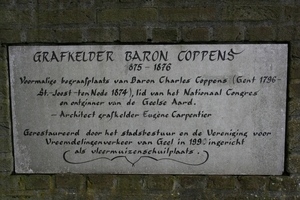 GRAFKELDER BARON COPPENS
1875 - 1876
Voormalige begraafplaats van Baron Charles Coppens (Gent 1796-
St.-Joost-ten Node 1874), lid van het Nationaal Congres
en ontginner van de Geelse Aard.
- Architect grafkelder Eugène Carpentier
Gerestaureerd door het stadsbestuur en de Vereniging voor
Vreemdelingenverkeer van Geel in ingericht
als vleermuizenschuilplaats.